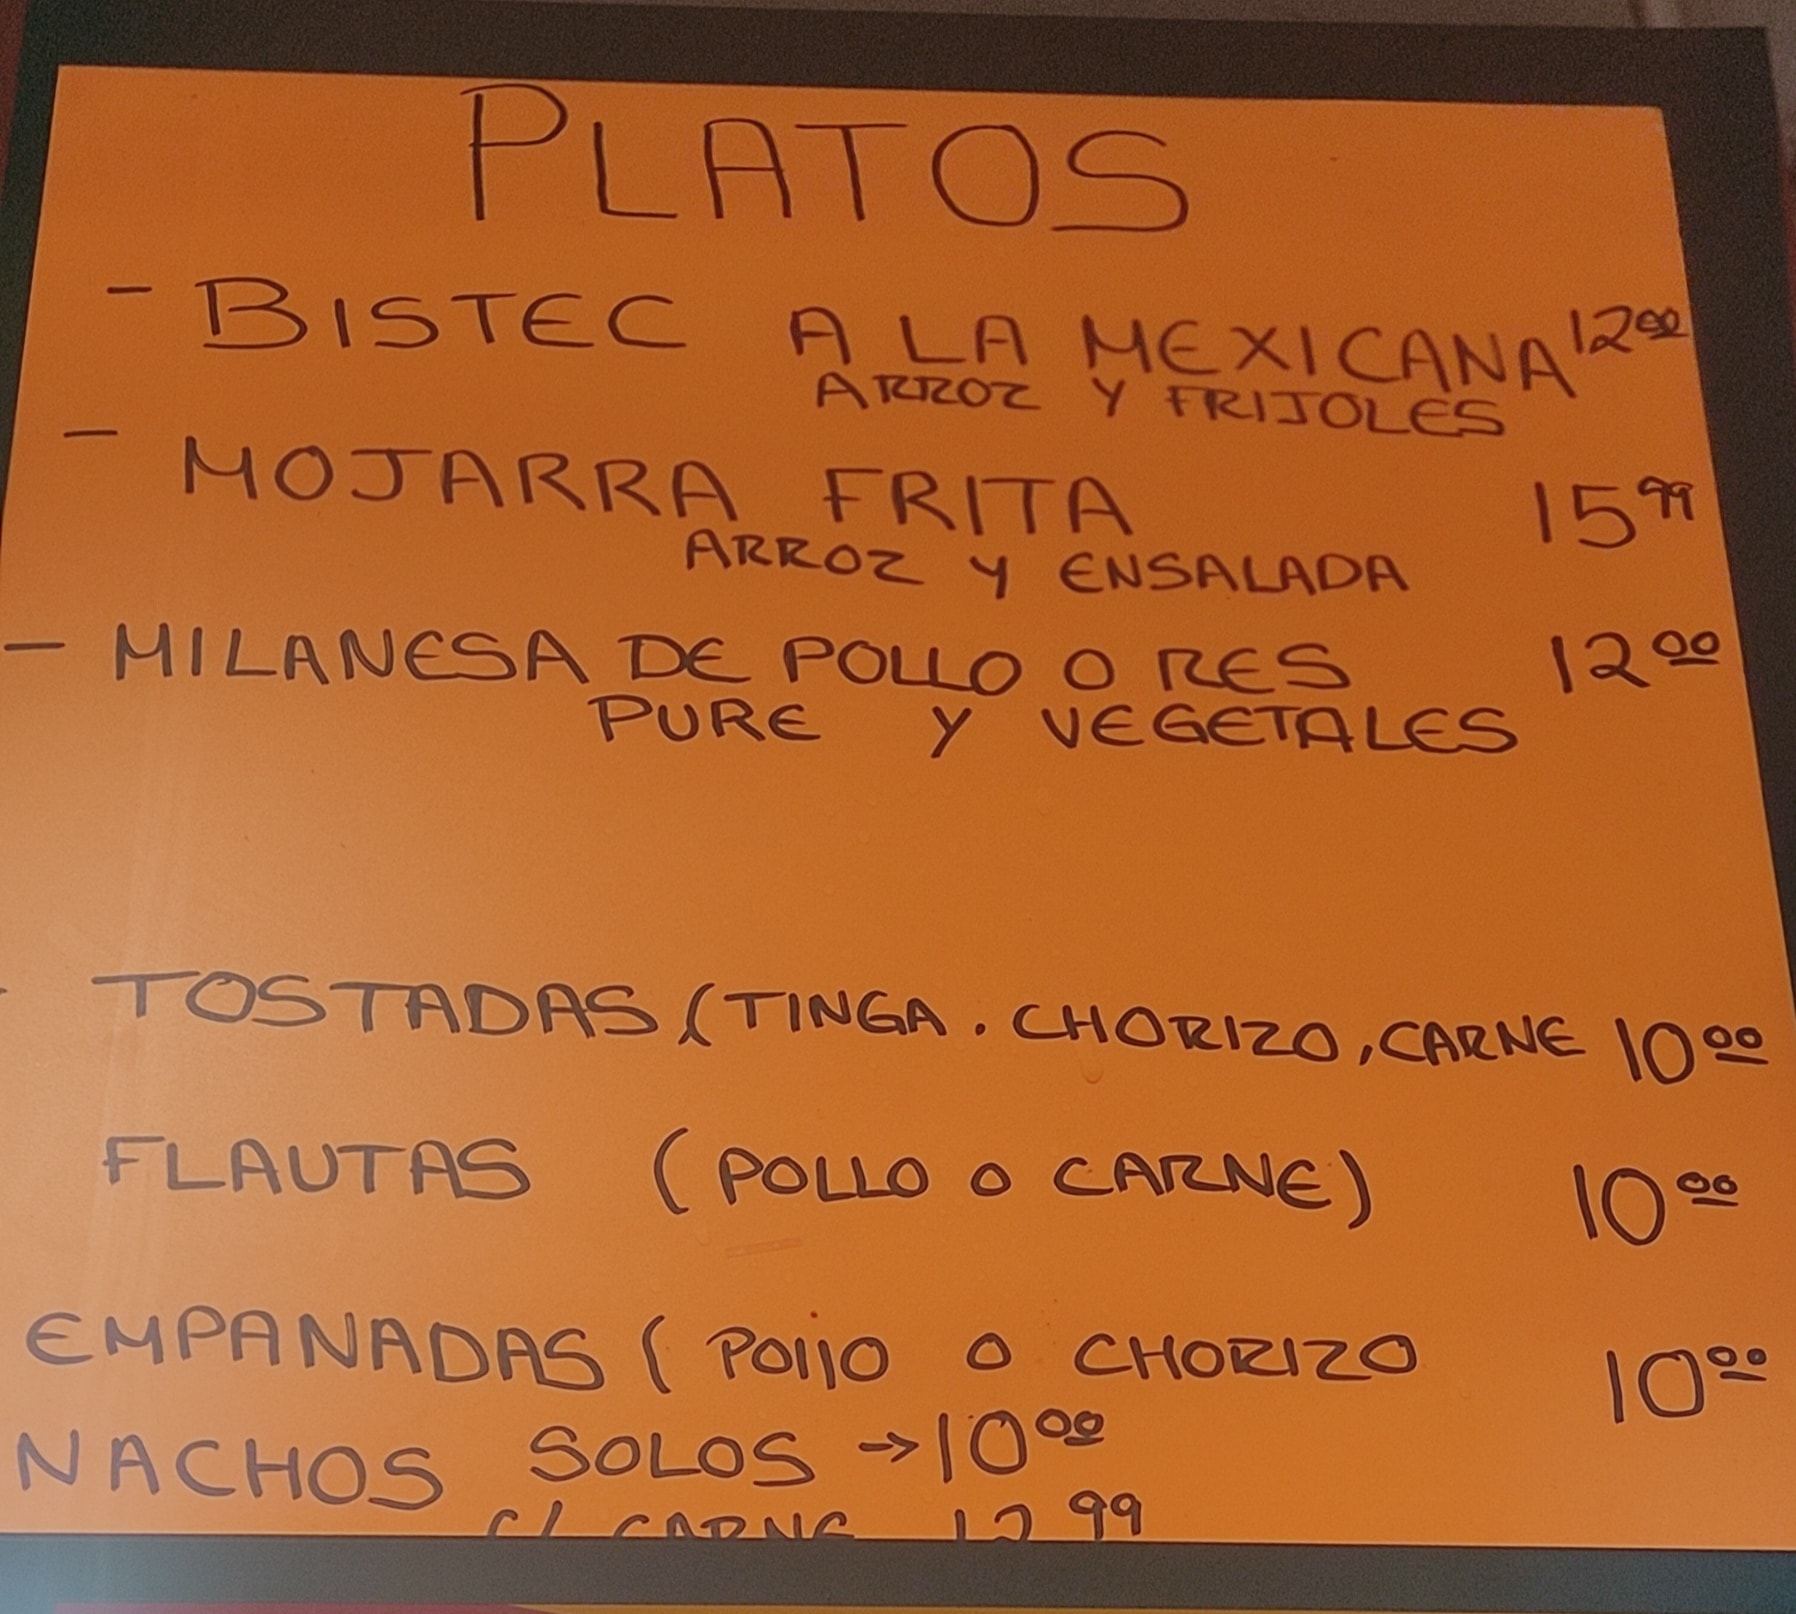 PLATOS
- BISTEC A LA MEXICANA 12.00
ARROZ Y FRIJOLES
- MOJARRA FRITA 15.99
ARROZ Y ENSALADA
- MILANESA DE POLLO O RES 12.00
PURE Y VEGETALES
- TOSTADAS (TINGA. CHORIZO, CARNE 10.00
FLAUTAS (POLLO O CARNE) 10.00
EMPANADAS (POLLO O CHORIZO 10.00
NACHOS SOLOS → 10.00
C/ CARNE 12.99